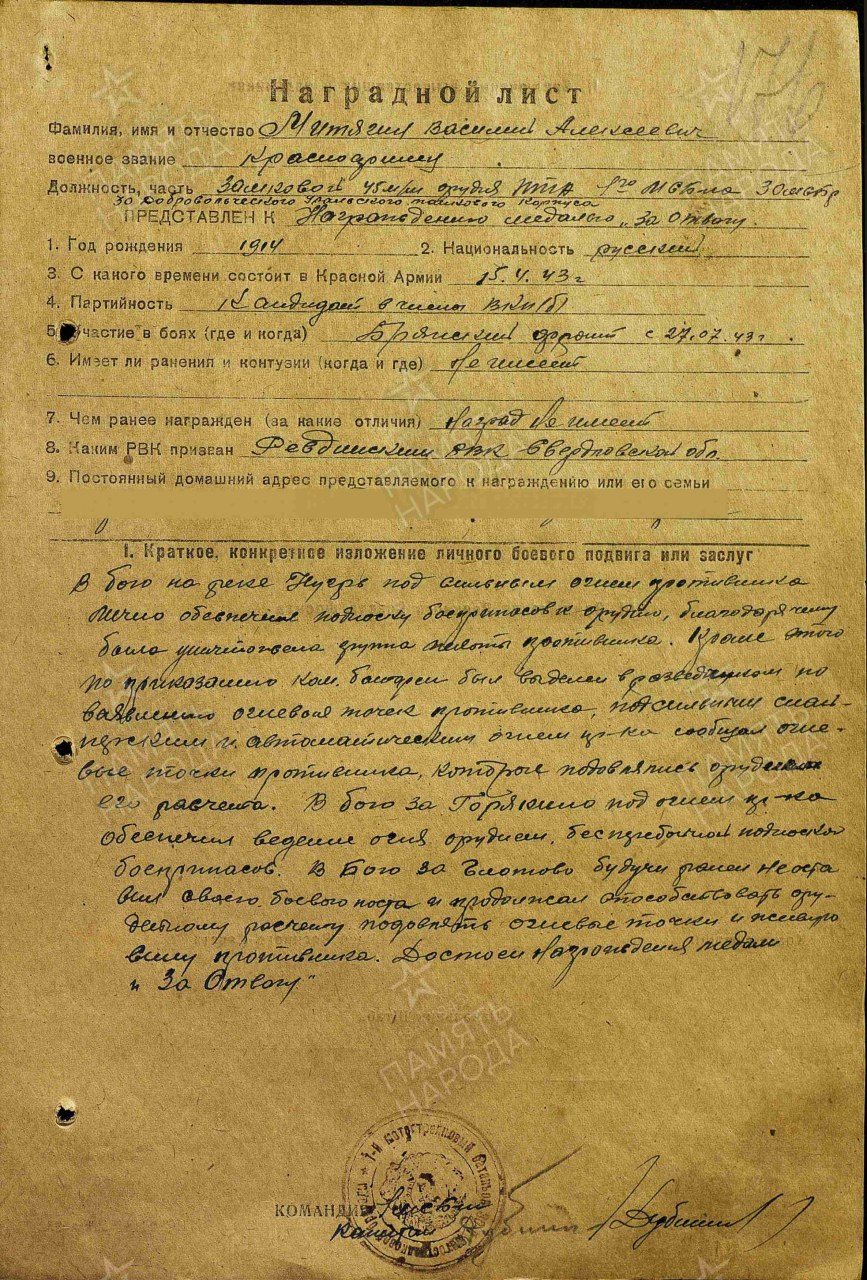 Наградной лист
Фамилия, имя и отчество Митягин Василий Алексеевич
военное звание Красноармеец
Должность, часть Замковой 45 м/м орудия ПТА 1го МСБ-на 30 мсбр
30 Добровольческого Уральского танкового Корпуса
ПРЕДСТАВЛЕН К Награждению медалью „За Отвагу"
1. Год рождения 1914 2. Национальность русский
3. С какого времени состоит в Красной Армии 15.4.43 г
4. Партийность Кандидат в члены ВКП/б/
5. Участие в боях (где и когда) Брянский фронт с 27.07.43 г
6. Имеет ли ранения и контузии (когда и где) Не имеет
7. Чем ранее награжден (за какие отличия) Наград не имеет
8. Каким РВК призван Ревдинским РВК Свердловской обл.
9. Постоянный домашний адрес представляемого к награждению или его семьи
I. Краткое, конкретное изложение личного боевого подвига или заслуг
В бою на реке Нугрь под сильным огнем противника
лично обеспечил подноску боеприпасов к орудию, благодаря чему
была уничтожена группа пехоты противника. Кроме этого
по приказанию ком. батареи был выделен в разведчиком по
выявлению огневых точек противника, под сильным снай-
перским и автоматическим огнем пр-ка сообщал огне-
вые точки противника, которые подовлялись орудием
его расчета. В бою за под огнем пр-ка
обеспечил ведение огня орудием, бесперебойной подноской
боеприпасов. В Бою за Глотово будучи ранен не оста
вил своего боевого поста и продолжал способствовать ору-
дейному расчету подовлять огневые точки и живую
силу противника. Достоин Награждения медали
„За Отвагу"
КОМАНДИР
Капитан
ПАМЯТЬ
НАРОДА